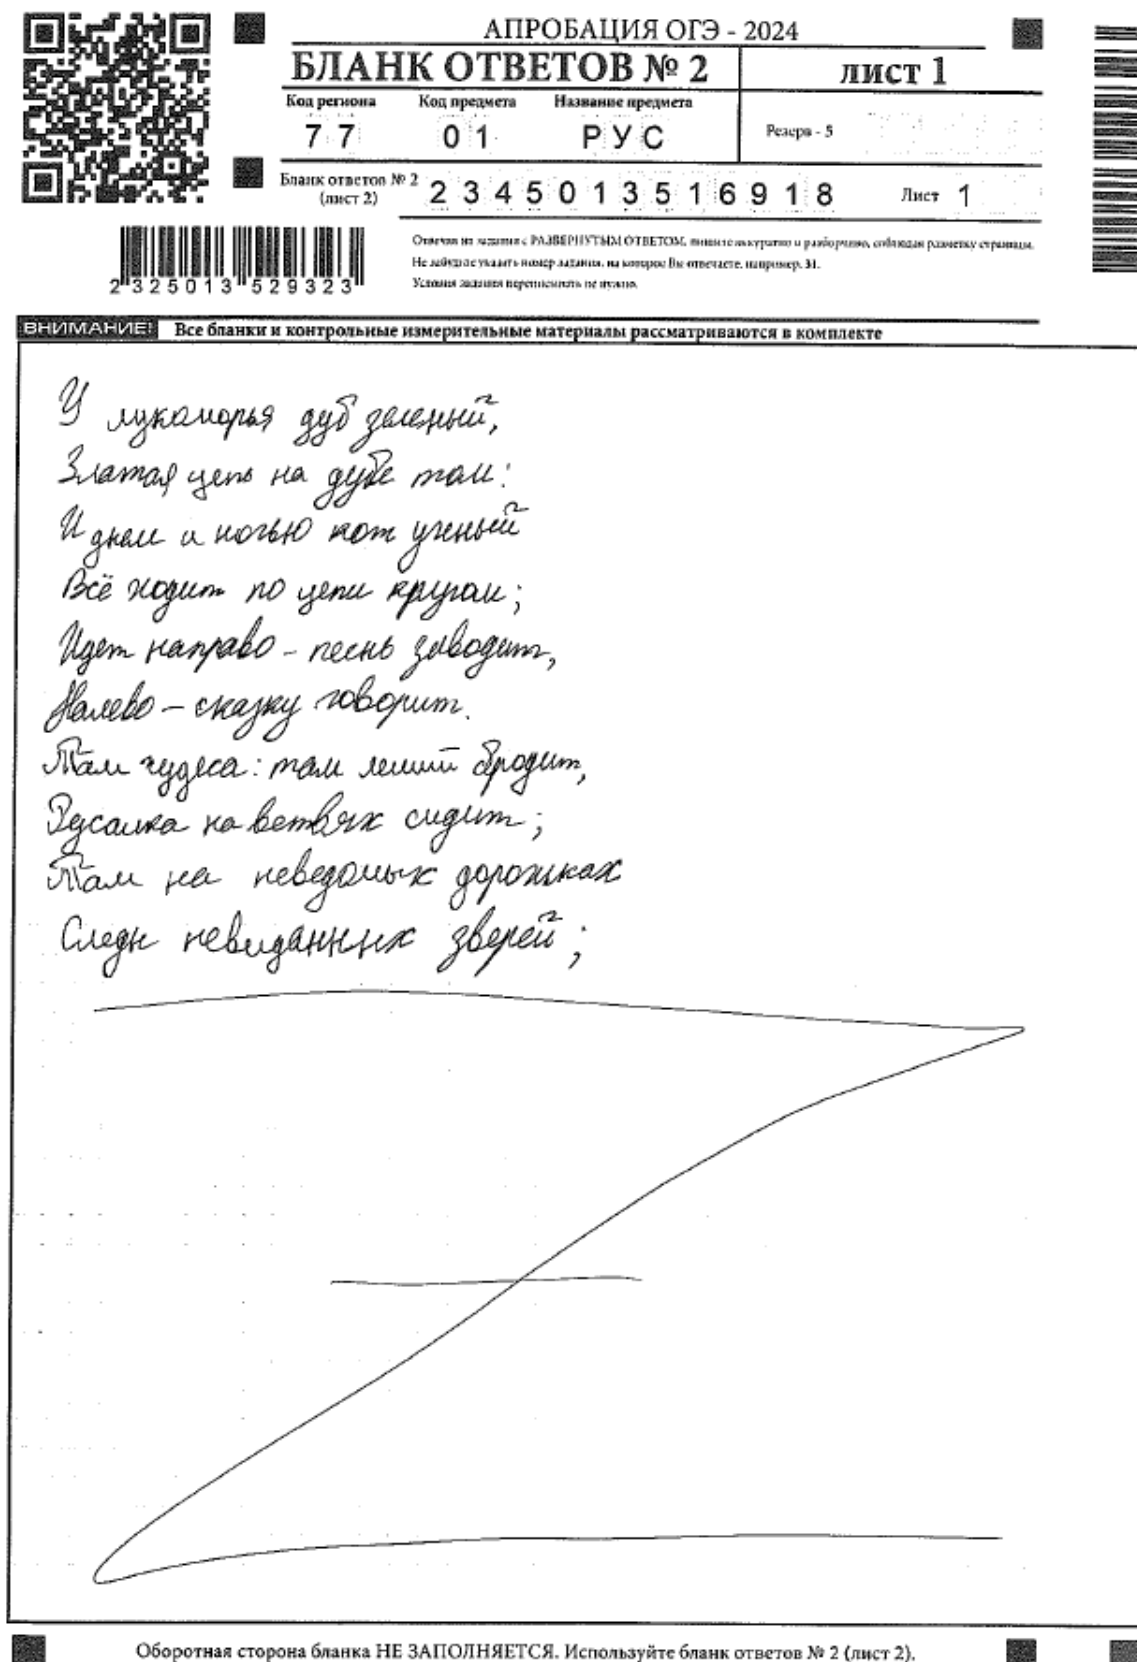 АПРОБАЦИЯ ОГЭ - 2024
БЛАНК ОТВЕТОВ № 2
ЛИСТ 1
Код региона Код предмета Название предмета
77 01 РУС
Резерв - 5
Бланк ответов № 2 (лист 2) 2345013516918 Лист 1
Отвечая на задания с РАЗВЕРНУТЫМ ОТВЕТОМ, пишите аккуратно и разборчиво, соблюдая разметку страницы.
Не забудьте указать номер задания, на которое Вы отвечаете, например, 31.
Условия задания переписывать не нужно.
2325013529323
ВНИМАНИЕ! Все бланки и контрольные измерительные материалы рассматриваются в комплекте
У лукоморья дуб зеленый,
Златая цепь на дубе том:
И днем и ночью кот ученый
Всё ходит по цепи кругом;
Идет направо - песнь заводит,
Налево - сказку говорит.
Там чудеса: там леший бродит,
Русалка на ветвях сидит;
Там на неведомых дорожках
Следы невиданных зверей;
Оборотная сторона бланка НЕ ЗАПОЛНЯЕТСЯ. Используйте бланк ответов № 2 (лист 2).